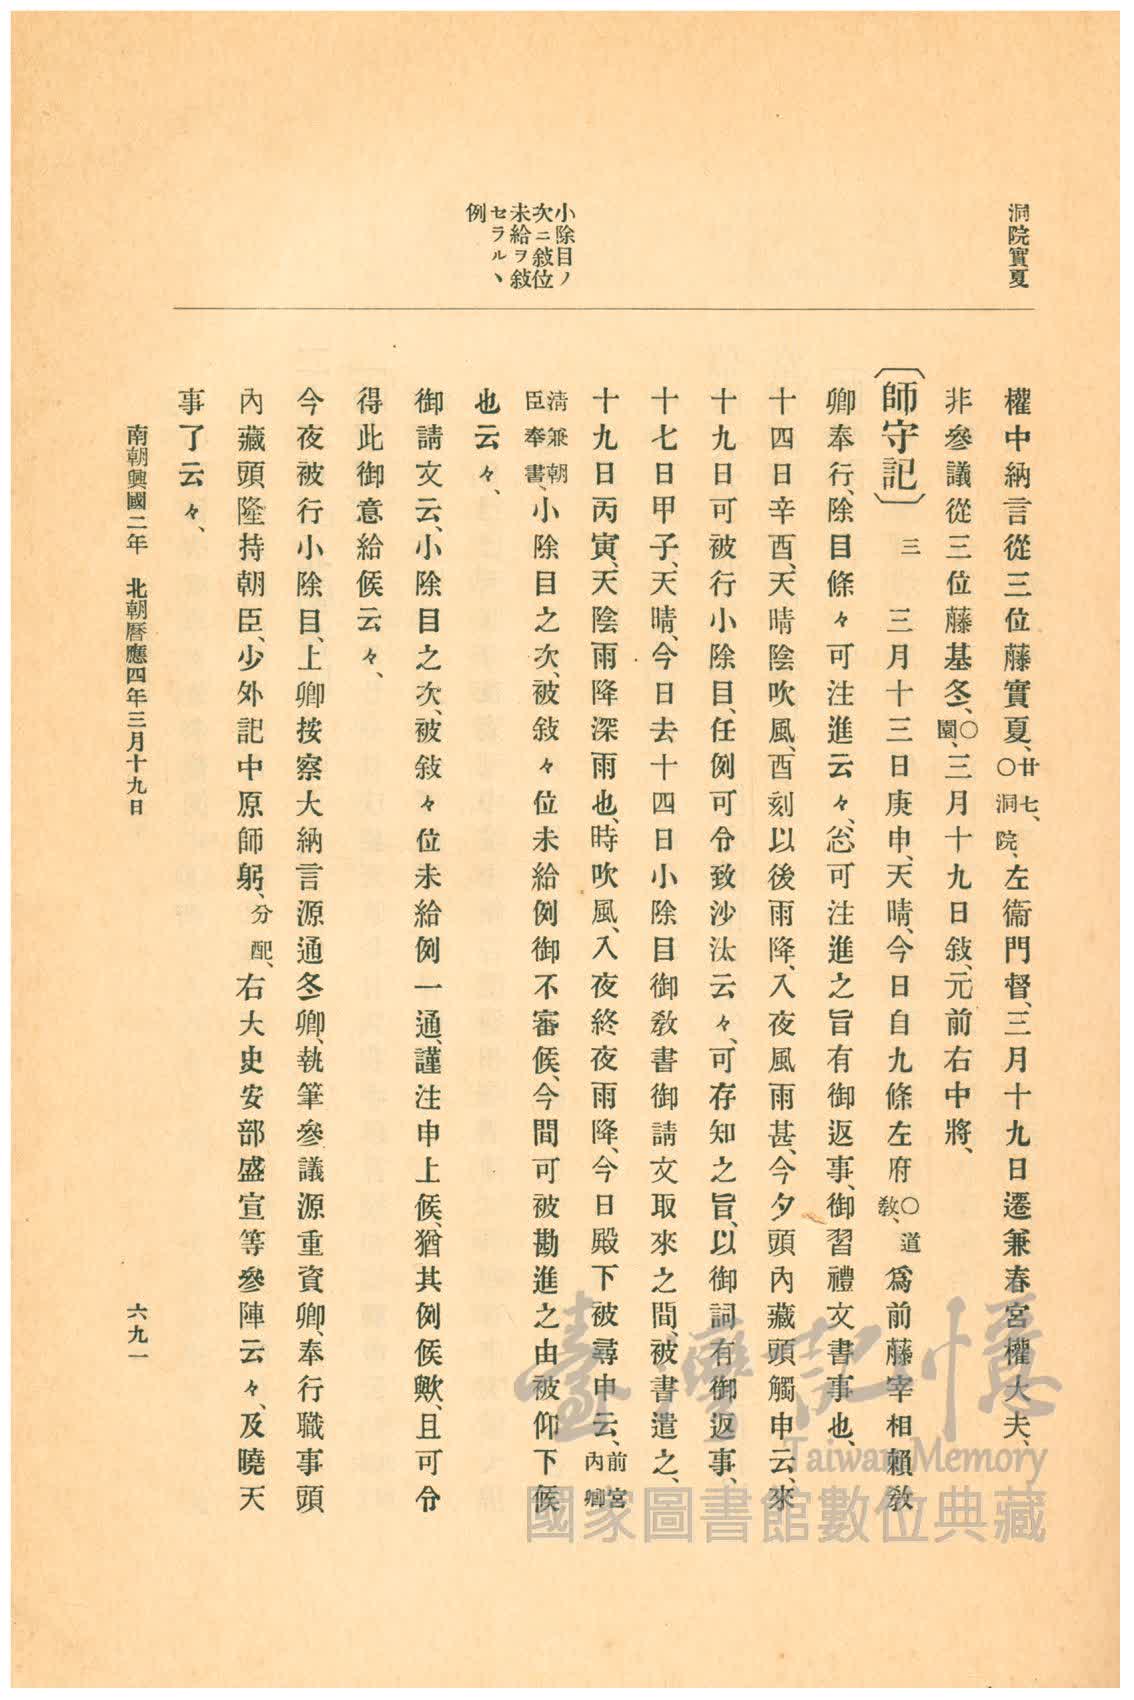 洞院實夏
小除目ノ
次ニ敍位
未給ヲ敍
セラルヽ
例
權中納言從三位藤實夏、廿七、〇洞院、左衞門督、三月十九日遷兼春宮權大夫、
非參議從三位藤基冬、〇園、三月十九日敍、元前右中將、
〔師守記〕三　三月十三日庚申、天晴、今日自九條左府〇道敎、爲前藤宰相賴敎
卿奉行、除目條々可注進云々、忩可注進之旨有御返事、御習禮文書事也、
十四日辛酉、天晴陰吹風、酉刻以後雨降、入夜風雨甚、今夕頭內藏頭觸申云、來
十九日可被行小除目、任例可令致沙汰云々、可存知之旨、以御詞有御返事、
十七日甲子、天晴、今日去十四日小除目御敎書御請文取來之間、被書遣之、
十九日丙寅、天陰雨降深雨也、時吹風、入夜終夜雨降、今日殿下被尋申云、前宮內卿
淸兼朝臣奉書、小除目之次、被敍々位未給例御不審候、今間可被勘進之由被仰下候
也云々、
御請文云、小除目之次、被敍々位未給例一通、謹注申上候、猶其例候歟、且可令
得此御意給候云々、
今夜被行小除目、上卿按察大納言源通冬卿、執筆參議源重資卿、奉行職事頭
內藏頭隆持朝臣、少外記中原師躬、分配、右大史安部盛宣等參陣云々、及曉天
事了云々、
南朝興國二年　北朝曆應四年三月十九日
六九一
臺灣記憶
Taiwan Memory
國家圖書館數位典藏